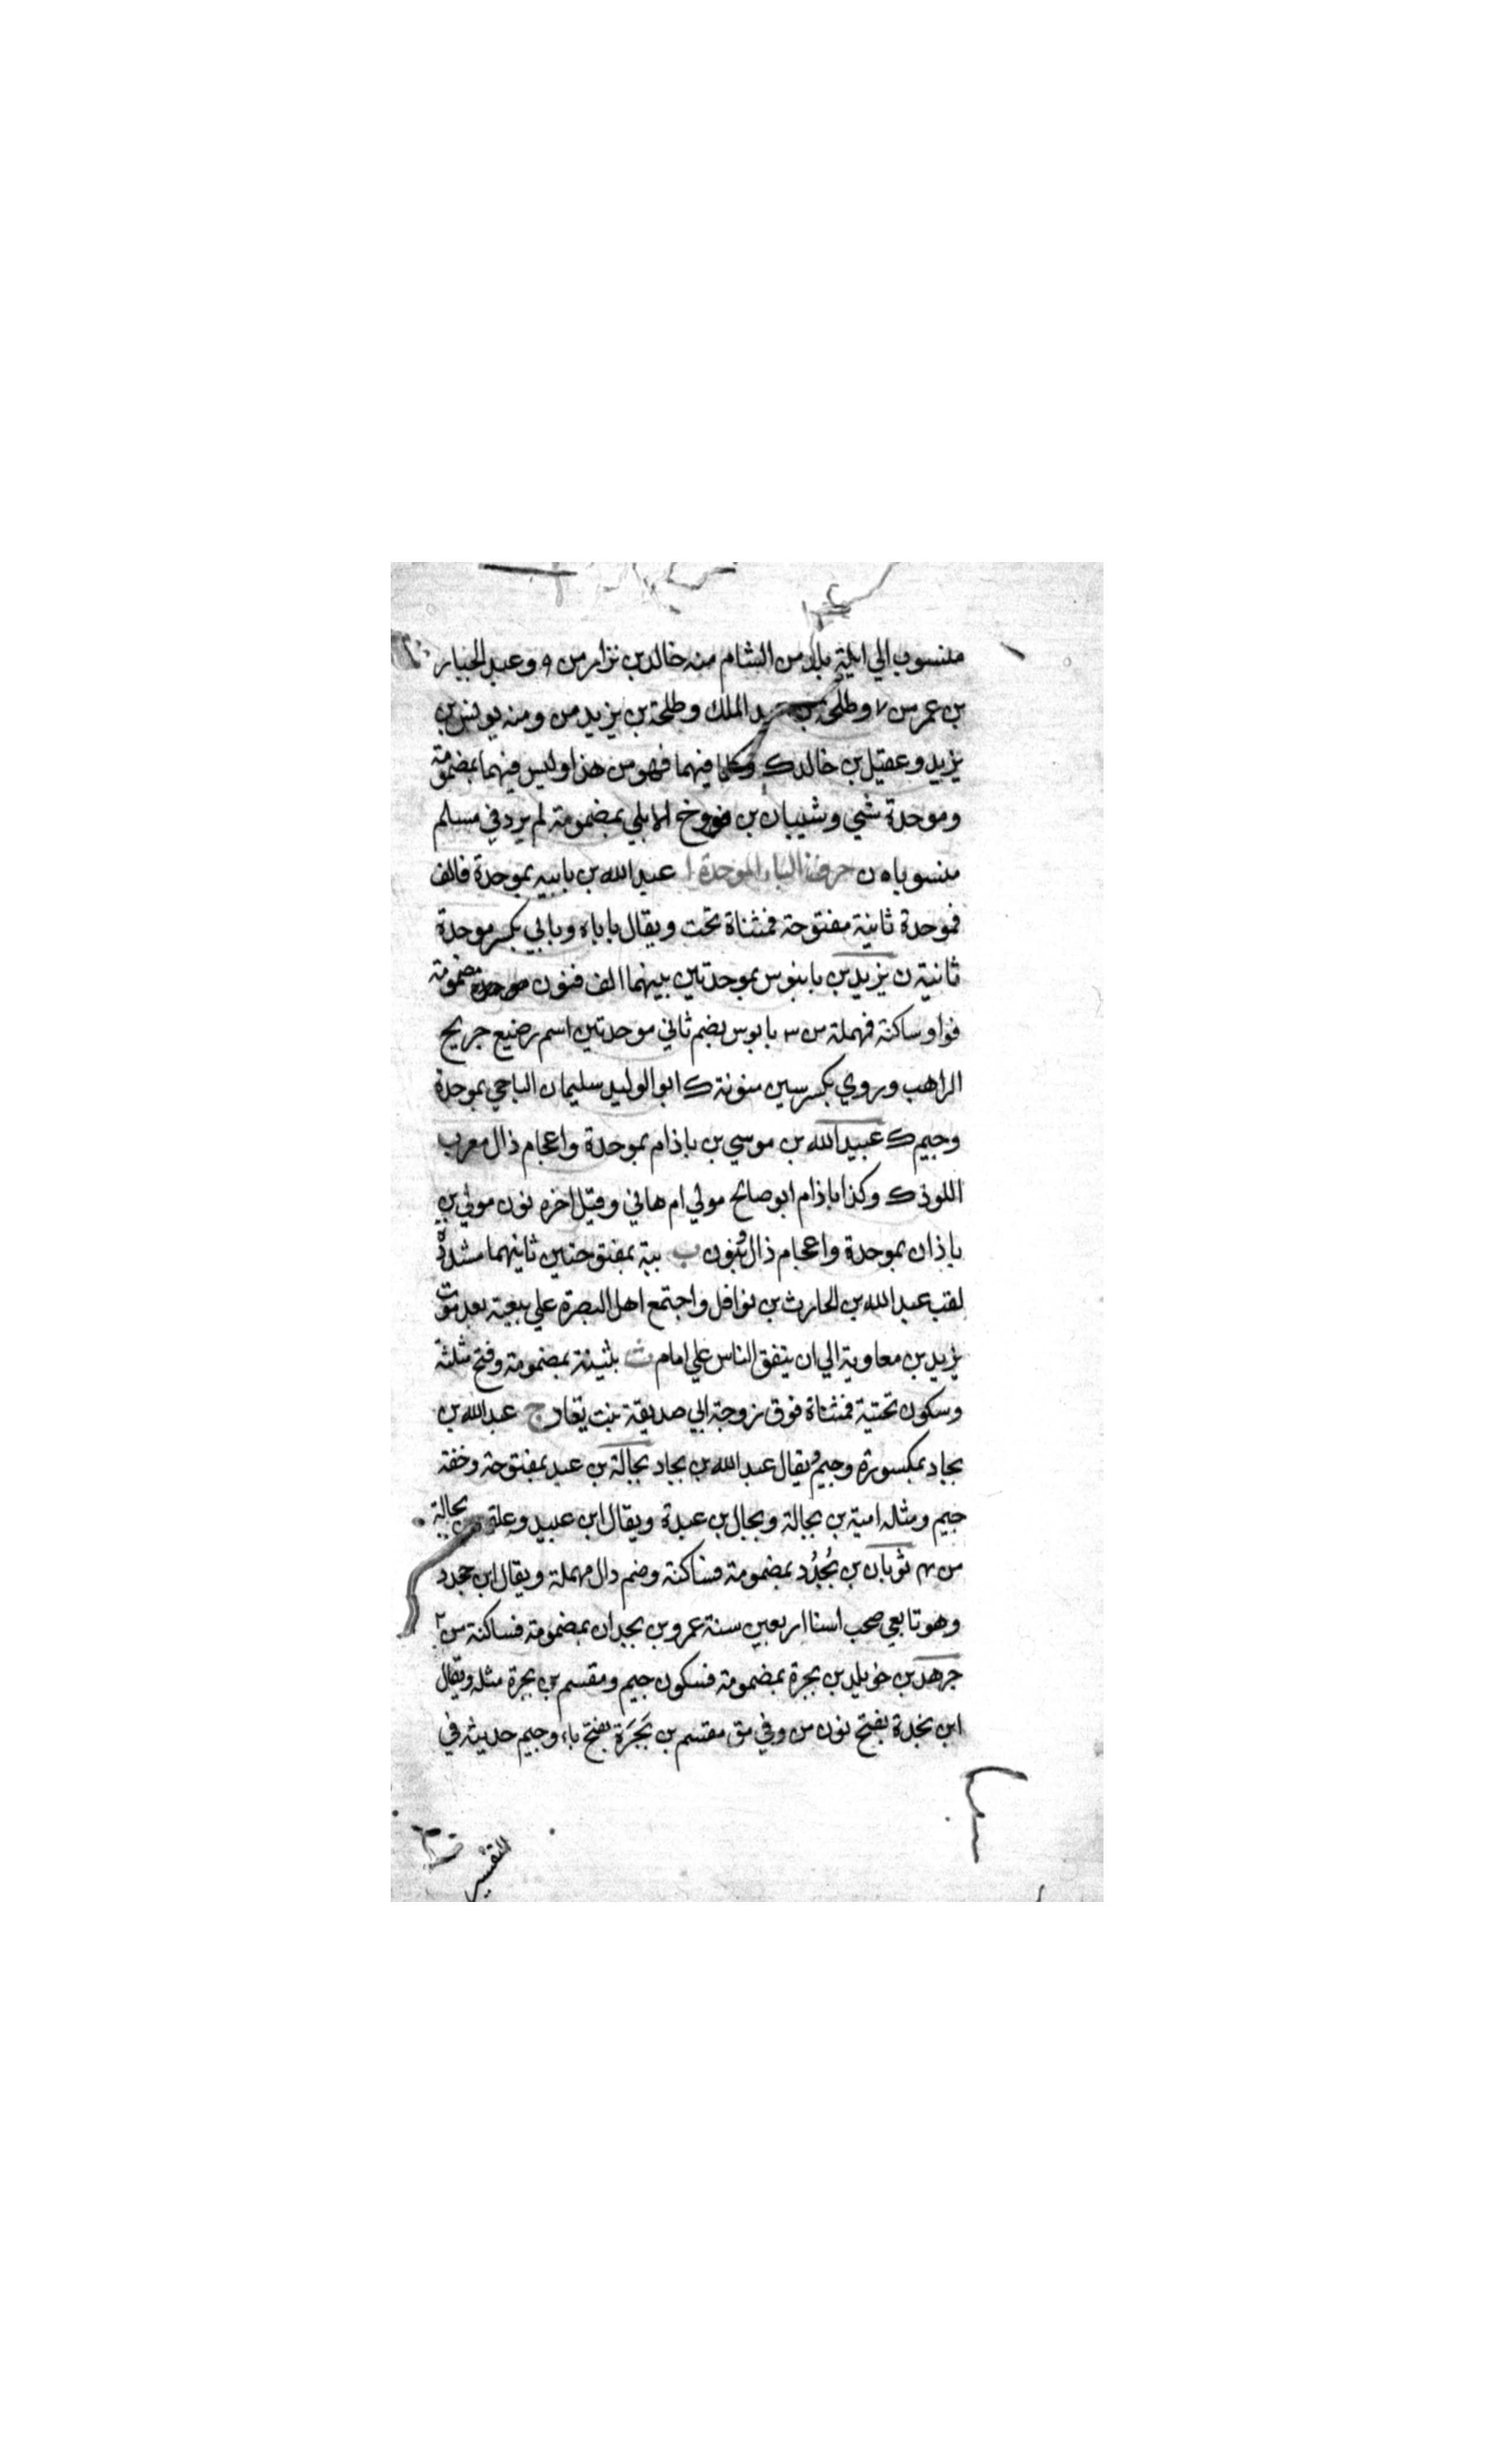 منسوب الي ايلة بلد من الشام منه خالد بن نزار س ۹ وعبد الجبار
بن عمر س ۷ وطلحة بن عبد الملك وطلحة بن يزيد من ومنه يونس بن
يزيد وعقيل بن خالد ك وكلما فيهما فهو من هذا وليس فيهما بمضمومة
وموحدة شي وشيبان بن فروخ الابلي بمضمومة لم يرد في مسلم
منسوبا ه ن حرف الباء الموحدة ا عبد الله بن بابيه بموحدة فالف
فموحدة ثانية مفتوحة فمثناة تحت ويقال باباه وبابي بكسر موحدة
ثانية ن يزيد بن بابنوس بموحدتين بينهما الف فنون مضمومة
فواو ساكنة فمهملة س ۳ بابوس بضم ثاني موحدتين اسم رضيع جريج
الراهب وروي بكسر سين منونة ك ابو الوليد سليمان الباجي بموحدة
وجيم ك عبيد الله بن موسي بن باذام بموحدة واعجام ذال معرب
اللوذ ك وكذا باذام ابو صالح مولي ام هاني وقيل اخره نون موسي بن
باذان بموحدة واعجام ذال ونون ب ببة بمفتوحتين ثانيهما مشددة
لقب عبد الله بن الحارث بن نوافل واجتمع اهل البصرة علي بيعته بعد موت
يزيد بن معاوية الي ان يتفق الناس علي امام ث بثينة بمضمومة وفتح مثلثة
وسكون تحتية فمثناة فوق زوجة ابي صديقة بنت يعار ج عبد الله بن
بجاد بمكسورة وجيم ويقال عبد الله بن بجاد بجالة بن عبد بمفتوحة وخفة
جيم ومثله امية بن بجالة وبجال بن عبدة ويقال ابن عبيد وعلة بن بجالة
من ۳ ثوبان بن بُجدُد بمضمومة فساكنة وضم دال مهملة ويقال ابن جحدد
وهو تابعي صحب انسا اربعين سنة عمرو بن بجدان بمضمومة فساكنة س ۲
جرهد بن خويلد بن بجرة بمضمومة فسكون جيم ومقسم بن بجرة مثله ويقال
ابن نجدة بفتح نون من وفي مق مقسم بن بَجَرَة بفتح باء وجيم حديثه في
التفسير